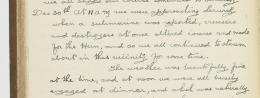 Dec 30th At 11 a.m. we were approaching
when a submarine was reported, cruisers
and destroyers at once altered course and made
for the Hun, and so we all continued to steam
about in this vicinity for some time.
The weather was beautifully fine
at the time, and at noon we were all busily
engaged at dinner, and which was naturally